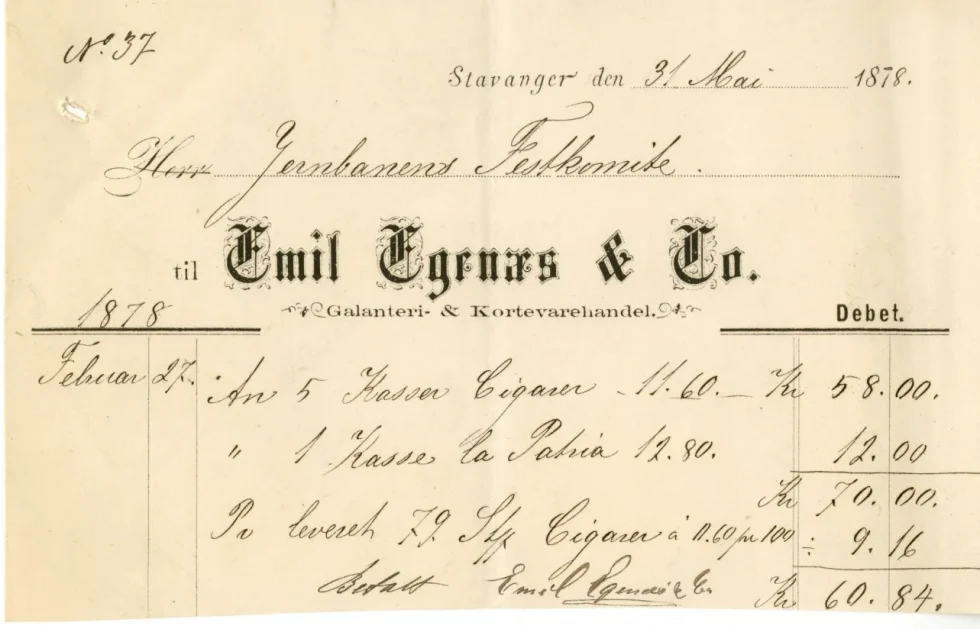 No. 37
Stavanger den 31 Mai 1878.
Herr Jernbanens Festkomite.
til Emil Egenæs & Co.
Galanteri- & Kortevarehandel.
1878 Debet.
Februar 27. An 5 Kasser Cigarer 11.60. Kr 58.00.
" 1 Kasse la Patria 12.80. 12.00
Kr 70.00.
leveret 79 Stk Cigarer à 11.60 pr 100 ÷ 9.16
Betalt Emil Egenæs & Co Kr 60.84.